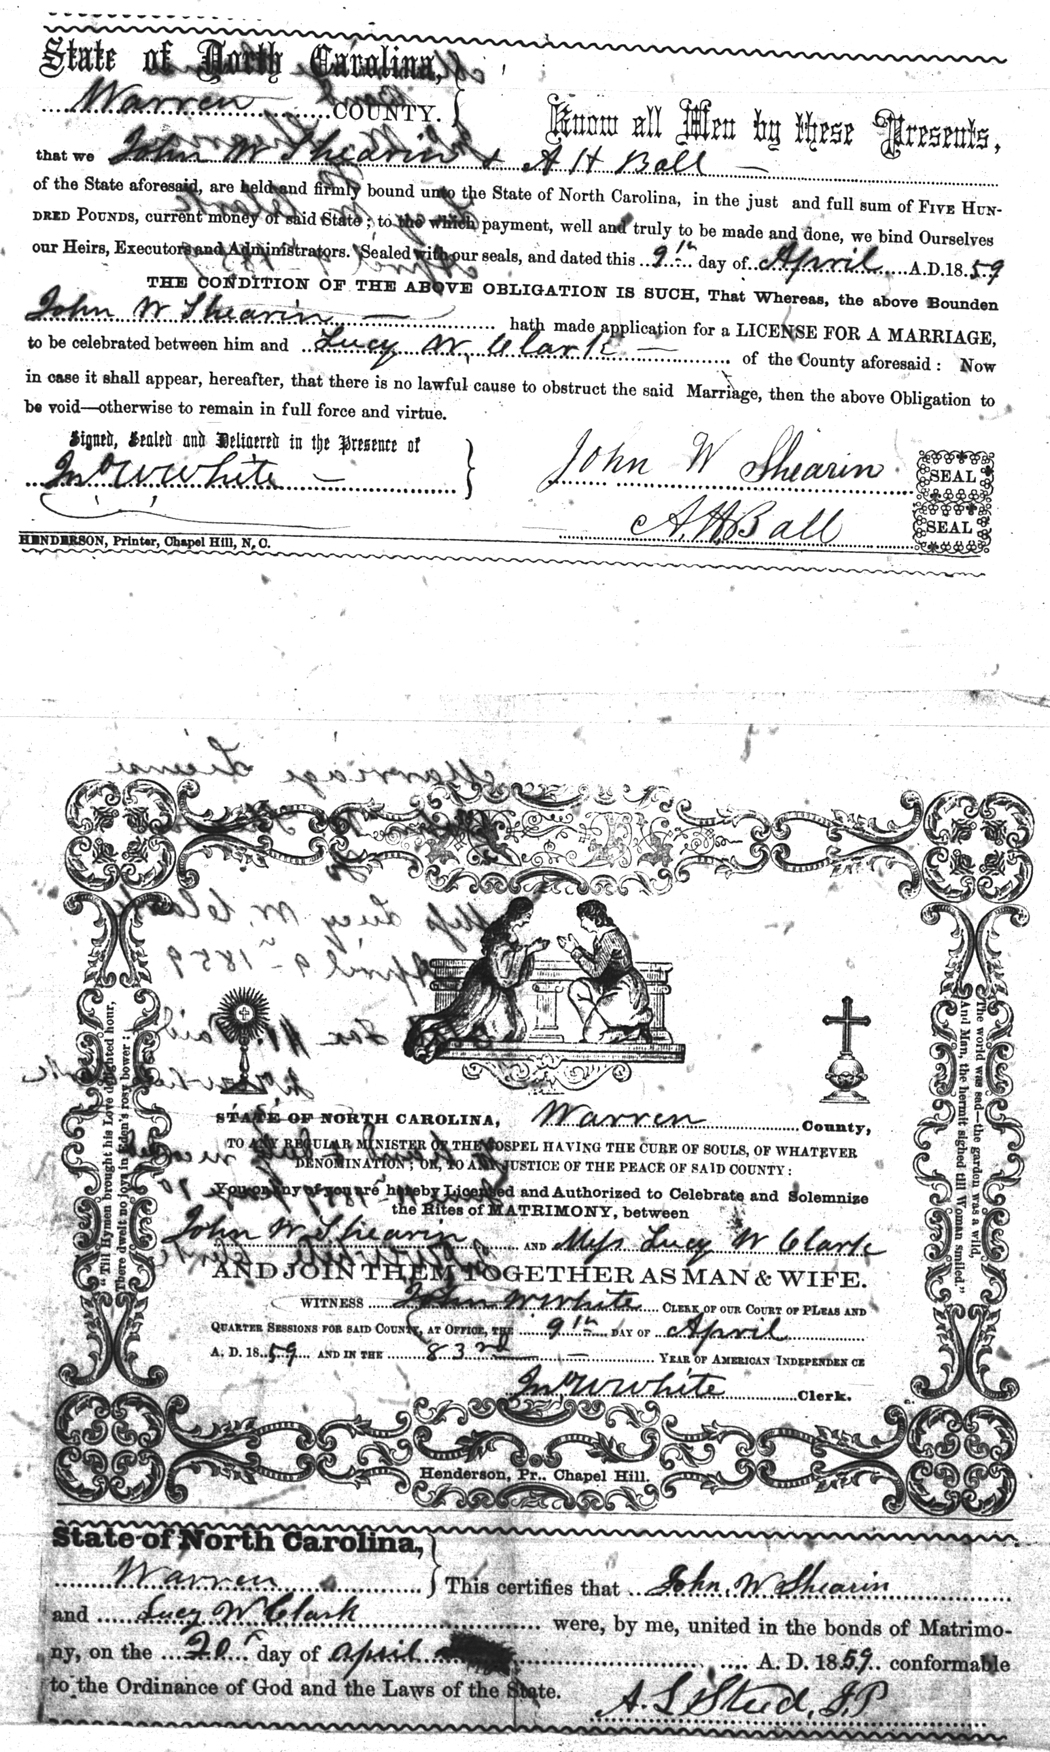 State of North Carolina,
Warren COUNTY.
Know all Men by these Presents,
that we John W Shearin & A H Ball
of the State aforesaid, are held and firmly bound unto the State of North Carolina, in the just and full sum of FIVE HUN-
DRED POUNDS, current money of said State; to the which payment, well and truly to be made and done, we bind Ourselves
our Heirs, Executors and Administrators. Sealed with our seals, and dated this 9th day of April A.D. 1859
THE CONDITION OF THE ABOVE OBLIGATION IS SUCH, That Whereas, the above Bounden
John W Shearin hath made application for a LICENSE FOR A MARRIAGE,
to be celebrated between him and Lucy W, Clark of the County aforesaid: Now
in case it shall appear, hereafter, that there is no lawful cause to obstruct the said Marriage, then the above Obligation to
be void—otherwise to remain in full force and virtue.
Signed, Sealed and Delivered in the Presence of
Jno W White
John W Shearin SEAL
A. H. Ball SEAL
HENDERSON, Printer, Chapel Hill, N. C.
Marriage License
Miss Lucy W. Clark
April 9th 1859
"Till Hymen brought his Love delighted hour,
There dwelt no joy in Eden's rosy bower:
The world was sad—the garden was a wild,
And Man, the hermit sighed till Woman smiled."
STATE OF NORTH CAROLINA, Warren County,
TO ANY REGULAR MINISTER OF THE GOSPEL HAVING THE CURE OF SOULS, OF WHATEVER
DENOMINATION; OR, TO ANY JUSTICE OF THE PEACE OF SAID COUNTY:
You or any of you are hereby Licensed and Authorized to Celebrate and Solemnize
the Rites of MATRIMONY, between
John W Shearin AND Miss Lucy W Clark
AND JOIN THEM TOGETHER AS MAN & WIFE.
WITNESS John W White CLERK OF OUR COURT OF PLEAS AND
QUARTER SESSIONS FOR SAID COUNTY, AT OFFICE, THE 9th DAY OF April
A. D. 1859 AND IN THE 83rd YEAR OF AMERICAN INDEPENDENCE
Jno W White Clerk.
Henderson, Pr.. Chapel Hill.
State of North Carolina,
Warren
This certifies that John, W Shearin
and Lucy W Clark were, by me, united in the bonds of Matrimo-
ny, on the 20 day of April A. D. 1859 conformable
to the Ordinance of God and the Laws of the State.
A. L. Steed, J.P